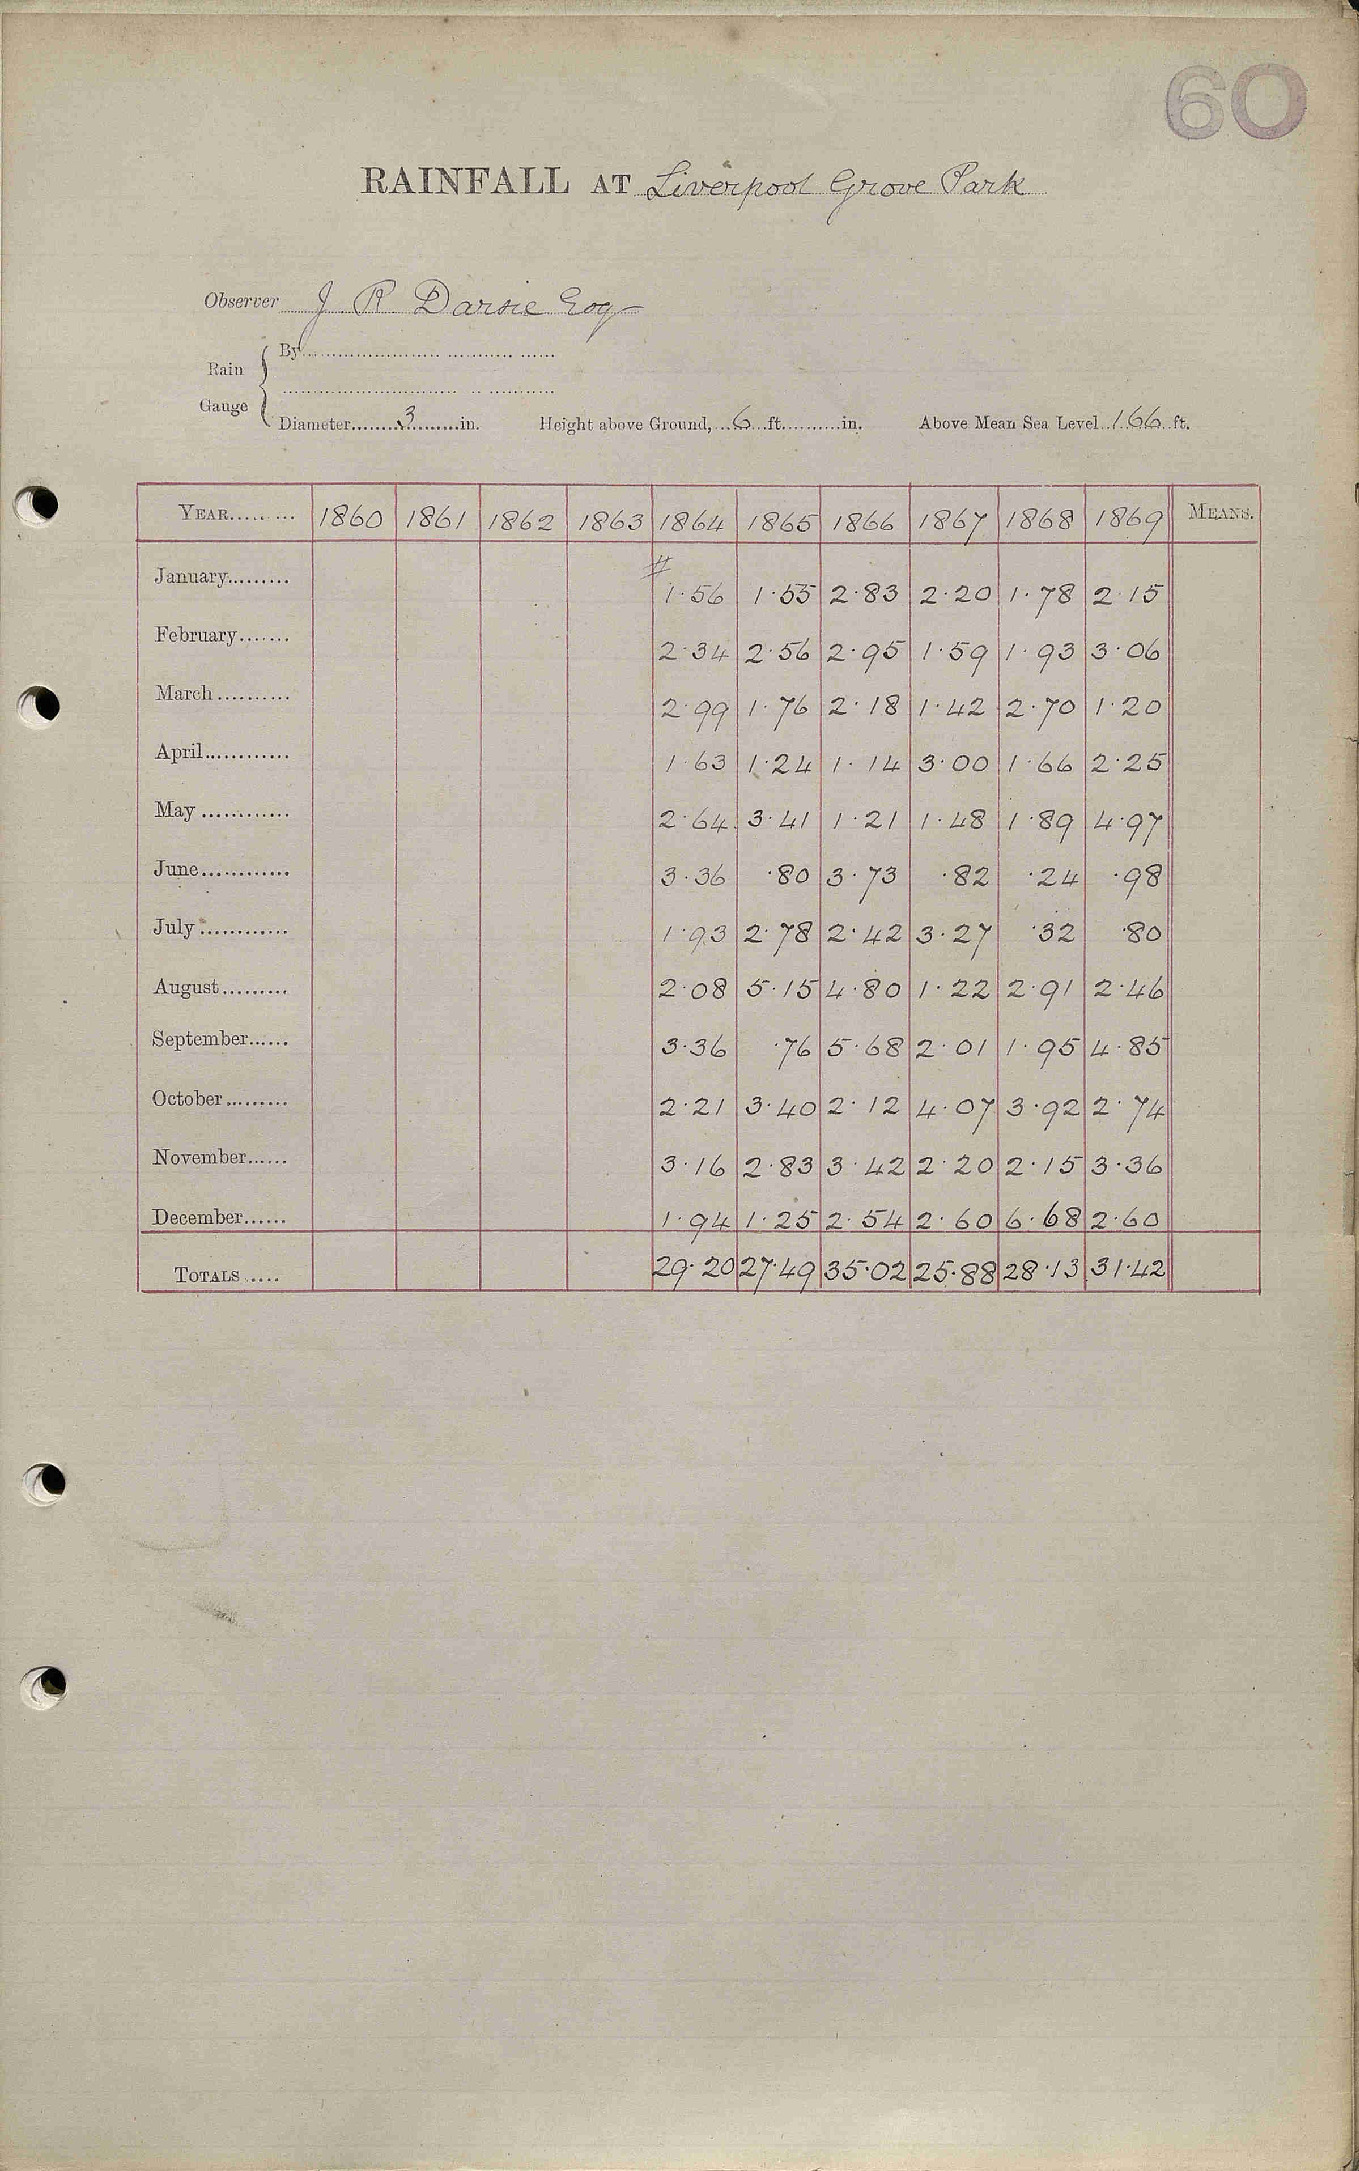 60
RAINFALL AT Liverpool Grove Park
Observer J R Darsie Esq
Rain Gauge
By
Diameter 3 in. Height above Ground, 6 ft. in. Above Mean Sea Level 166 ft.
YEAR 1860 1861 1862 1863 1864 1865 1866 1867 1868 1869 MEANS.
#
January 1.56 1.55 2.83 2.20 1.78 2.15
February 2.34 2.56 2.95 1.59 1.93 3.06
March 2.99 1.76 2.18 1.42 2.70 1.20
April 1.63 1.24 1.14 3.00 1.66 2.25
May 2.64 3.41 1.21 1.48 1.89 4.97
June 3.36 .80 3.73 .82 .24 .98
July 1.93 2.78 2.42 3.27 .32 .80
August 2.08 5.15 4.80 1.22 2.91 2.46
September 3.36 .76 5.68 2.01 1.95 4.85
October 2.21 3.40 2.12 4.07 3.92 2.74
November 3.16 2.83 3.42 2.20 2.15 3.36
December 1.94 1.25 2.54 2.60 6.68 2.60
TOTALS 29.20 27.49 35.02 25.88 28.13 31.42